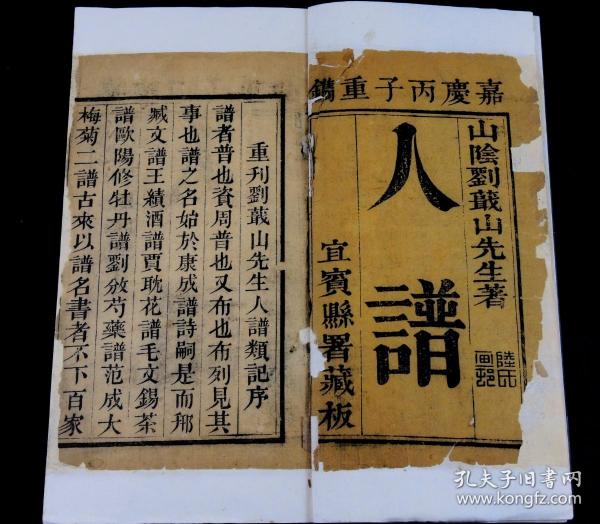 嘉慶丙子重鐫
山陰劉蕺山先生著
人譜
宜賓縣署藏板
重刊劉蕺山先生人譜類記序
譜者普也資周普也又布也布列見其
事也譜之名始於康成譜詩嗣是而邢
臧文譜王績酒譜賈耽花譜毛文錫茶
譜歐陽修牡丹譜劉攽芍藥譜范成大
梅菊二譜古來以譜名書者不下百家
孔夫子旧書网
www.kongfz.com